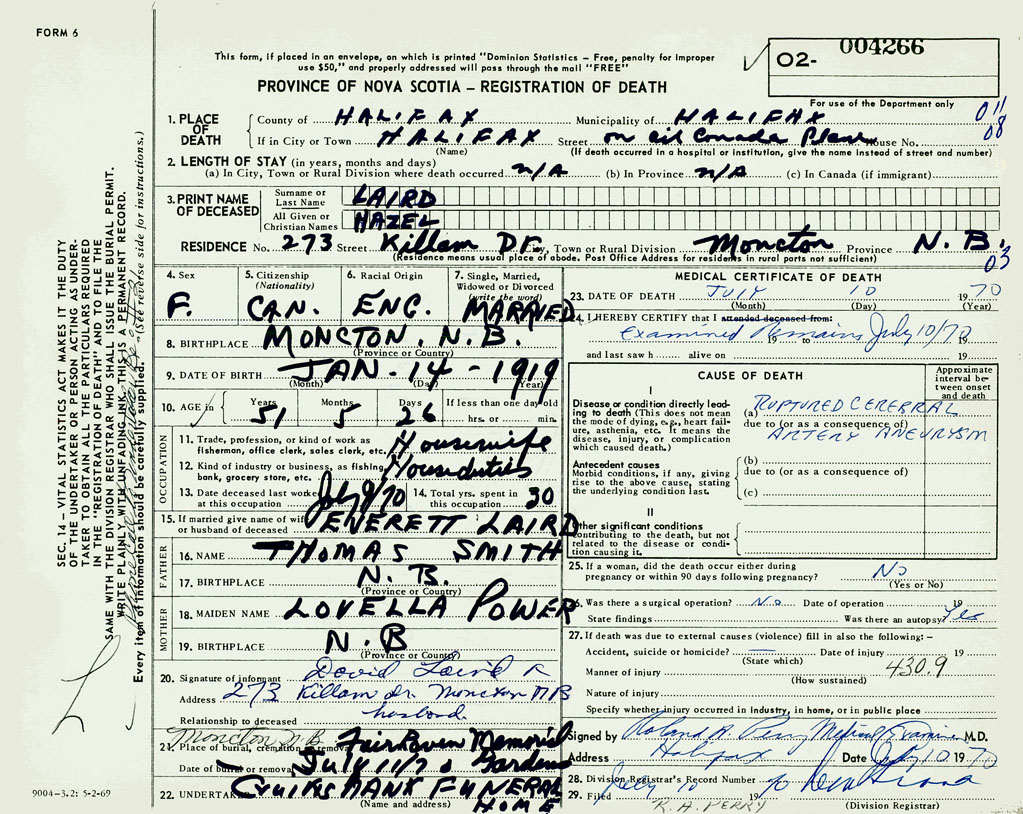 FORM 6
This form, if placed in an envelope, on which is printed "Dominion Statistics – Free, penalty for improper
use $50," and properly addressed will pass through the mail "FREE"
O2- 004266
For use of the Department only
PROVINCE OF NOVA SCOTIA – REGISTRATION OF DEATH
011
08
1. PLACE OF DEATH
County of HALIFAX Municipality of HALIFAX
If in City or Town HALIFAX Street on air Canada Plane House No.
(Name) (If death occurred in a hospital or institution, give the name instead of street and number)
2. LENGTH OF STAY (in years, months and days)
(a) In City, Town or Rural Division where death occurred N/A (b) In Province N/A (c) In Canada (if immigrant)
3. PRINT NAME OF DECEASED
Surname or Last Name LAIRD
All Given or Christian Names HAZEL
RESIDENCE No. 273 Street Killam Dr. City, Town or Rural Division Moncton Province N.B.
(Residence means usual place of abode. Post Office Address for residents in rural parts not sufficient)
03
4. Sex F.
5. Citizenship (Nationality) CAN.
6. Racial Origin ENG.
7. Single, Married, Widowed or Divorced (write the word) MARRIED
8. BIRTHPLACE MONCTON, N.B.
(Province or Country)
9. DATE OF BIRTH JAN - 14 - 1919
(Month) (Day) (Year)
10. AGE in Years 51 Months 5 Days 26 If less than one day old hrs. or min.
OCCUPATION
11. Trade, profession, or kind of work as fisherman, office clerk, sales clerk, etc. Housewife
12. Kind of industry or business, as fishing, bank, grocery store, etc. Houseduties
13. Date deceased last worked at this occupation July 9/70 14. Total yrs. spent in this occupation 30
15. If married give name of wife or husband of deceased EVERETT LAIRD
FATHER
16. NAME THOMAS SMITH
17. BIRTHPLACE N.B.
(Province or Country)
MOTHER
18. MAIDEN NAME LOVELLA POWER
19. BIRTHPLACE N.B
(Province or Country)
20. Signature of informant David Laird
Address 273 Killam dr. Moncton NB
Relationship to deceased husband.
Moncton N.B.
21. Place of burial, cremation or removal Fair Haven Memorial Gardens
Date of burial or removal July 11/70
22. UNDERTAKER Cruikshank FUNERAL HOME
(Name and address)
MEDICAL CERTIFICATE OF DEATH
23. DATE OF DEATH JULY 10 1970
(Month) (Day) (Year)
24. I HEREBY CERTIFY that I attended deceased from:
Examined Remains July 10/70
19 to 19
and last saw h alive on 19
CAUSE OF DEATH
Approximate interval between onset and death
I
Disease or condition directly leading to death (This does not mean the mode of dying, e.g., heart failure, asthenia, etc. It means the disease, injury, or complication which caused death.)
(a) RUPTURED CEREBRAL
due to (or as a consequence of)
ARTERY ANEURYSM
Antecedent causes
Morbid conditions, if any, giving rise to the above cause, stating the underlying condition last.
(b)
due to (or as a consequence of)
(c)
II
Other significant conditions
contributing to the death, but not related to the disease or condition causing it.
25. If a woman, did the death occur either during pregnancy or within 90 days following pregnancy? No
(Yes or No)
26. Was there a surgical operation? No Date of operation 19
State findings Was there an autopsy? Yes
27. If death was due to external causes (violence) fill in also the following: –
Accident, suicide or homicide? — Date of injury 19
(State which)
Manner of injury 430.9
(How sustained)
Nature of injury
Specify whether injury occurred in industry, in home, or in public place
Signed by Roland A. Perry Medical Examiner M.D.
Address Halifax Date July 10 1970
28. Division Registrar's Record Number
29. Filed July 10 1970
R. A. PERRY (Division Registrar)
SEC. 14 – VITAL STATISTICS ACT MAKES IT THE DUTY
OF THE UNDERTAKER OR PERSON ACTING AS UNDER-
TAKER TO OBTAIN ALL THE PARTICULARS REQUIRED
IN THE "REGISTRATION OF DEATH" AND TO FILE THE
SAME WITH THE DIVISION REGISTRAR WHO SHALL ISSUE THE BURIAL PERMIT.
WRITE PLAINLY WITH UNFADING INK, THIS IS A PERMANENT RECORD.
Every item of information should be carefully supplied. (See reverse side for instructions.)
9004-3.2: 5-2-69